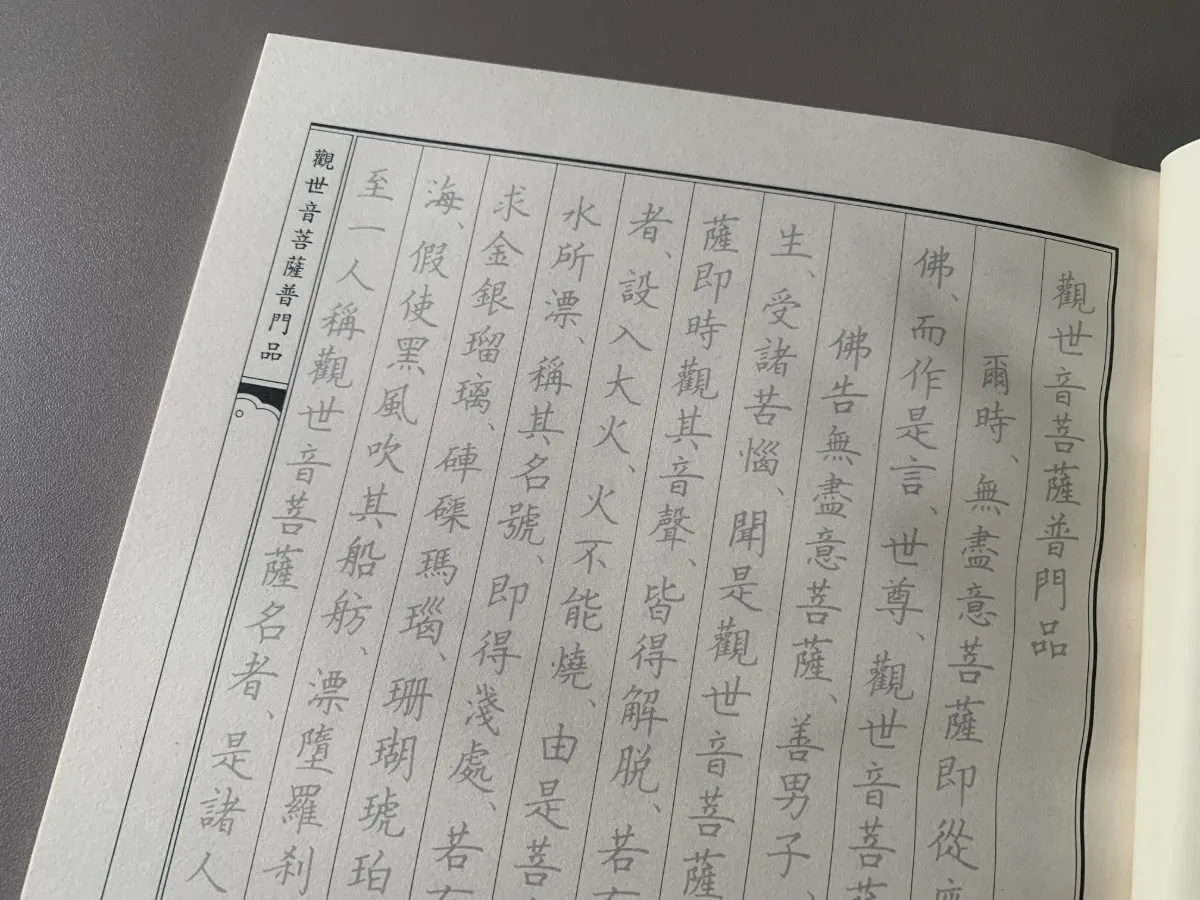 觀世音菩薩普門品
爾時、無盡意菩薩即從
佛、而作是言、世尊、觀世音菩
佛告無盡意菩薩、善男子、
生、受諸苦惱、聞是觀世音菩薩
薩即時觀其音聲、皆得解脱、若
者、設入大火、火不能燒、由是菩
水所漂、稱其名號、即得淺處、若
求金銀瑠璃、硨磲瑪瑙、珊瑚琥珀
海、假使黑風吹其船舫、漂墮羅刹
至一人稱觀世音菩薩名者、是諸人
觀世音菩薩普門品